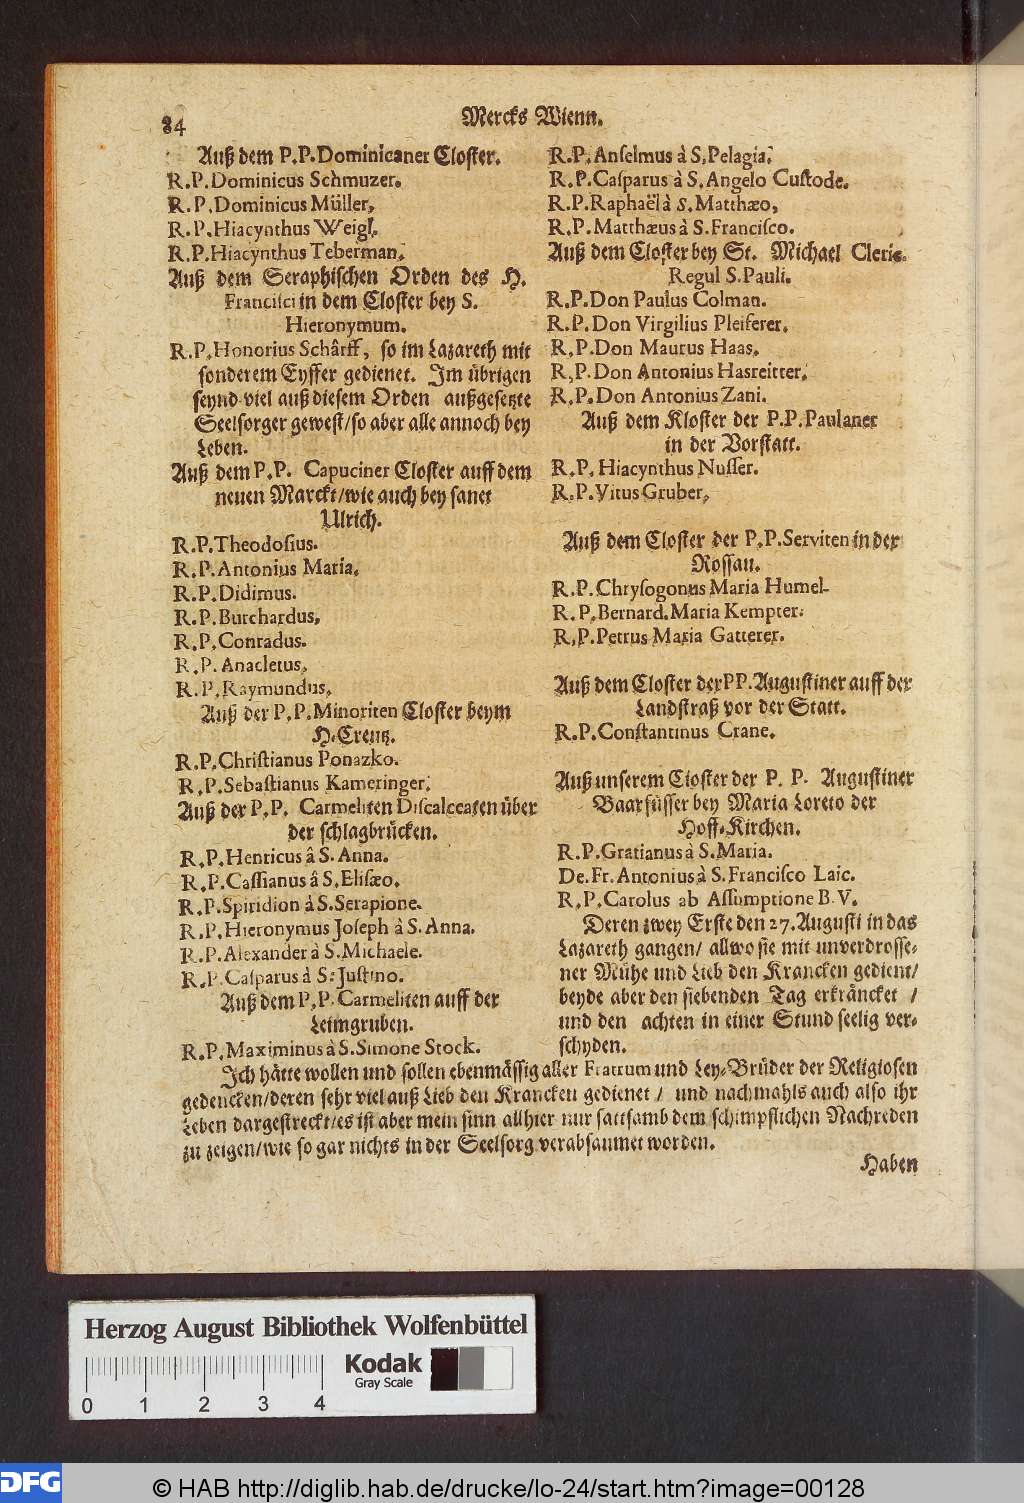 84
Mercks Wienn.
Auß dem P.P. Dominicaner Closter.
R.P. Dominicus Schmuzer.
R.P. Dominicus Müller,
R.P. Hiacynthus Weigl.
R.P. Hiacynthus Teberman.
Auß dem Seraphischen Orden des H.
Francisci in dem Closter bey S.
Hieronymum.
R.P. Honorius Schârff, so im Lazareth mit
sonderem Eyffer gedienet. Im übrigen
seynd viel auß diesem Orden außgesetzte
Seelsorger gewest/so aber alle annoch bey
Leben.
Auß dem P.P. Capuciner Closter auff dem
neuen Marckt/wie auch bey sanct
Ulrich.
R.P. Theodosius.
R.P. Antonius Maria.
R.P. Didimus.
R.P. Burchardus,
R.P. Conradus.
R.P. Anacletus,
R.P. Raymundus,
Auß der P.P. Minoriten Closter beym
H. Creutz.
R.P. Christianus Ponazko.
R.P. Sebastianus Kameringer.
Auß der P.P. Carmeliten Discalceaten über
der schlagbrücken.
R.P. Henricus â S. Anna.
R.P. Cassianus â S. Elisæo.
R.P. Spiridion à S. Serapione.
R.P. Hieronymus Joseph à S. Anna.
R.P. Alexander à S. Michaele.
R.P. Casparus à S. Justino.
Auß dem P.P. Carmeliten auff der
Leimgruben.
R.P. Maximinus à S. Simone Stock.
R.P. Anselmus à S. Pelagia.
R.P. Casparus à S. Angelo Custode.
R.P. Raphaël à S. Matthæo,
R.P. Matthæus à S. Francisco.
Auß dem Closter bey St. Michael Cleric.
Regul S. Pauli.
R.P. Don Paulus Colman.
R.P. Don Virgilius Pleiferer.
R.P. Don Maurus Haas.
R.P. Don Antonius Hasreitter.
R.P. Don Antonius Zani.
Auß dem Kloster der P.P. Paulaner
in der Vorstatt.
R.P. Hiacynthus Nusser.
R.P. Vitus Gruber,
Auß dem Closter der P.P. Serviten in der
Rossau.
R.P. Chrysogonus Maria Humel.
R.P. Bernard. Maria Kempter.
R.P. Petrus Maria Gatterer.
Auß dem Closter der PP. Augustiner auff der
Landstraß vor der Statt.
R.P. Constantinus Crane.
Auß unserem Closter der P. P. Augustiner
Baarfüsser bey Maria Loreto der
Hoff-Kirchen.
R.P. Gratianus à S. Maria.
De. Fr. Antonius à S. Francisco Laic.
R.P. Carolus ab Assumptione B.V.
Deren zwey Erste den 27. Augusti in das
Lazareth gangen/ allwo sie mit unverdrosse-
ner Mühe und Lieb den Krancken gedient/
beyde aber den siebenden Tag erkräncket /
und den achten in einer Stund seelig ver-
schyden.
Ich hätte wollen und sollen ebenmässig aller Fratrum und Ley-Brüder der Religiosen
gedencken/deren sehr viel auß Lieb den Krancken gedienet / und nachmahls auch also ihr
Leben dargestreckt/es ist aber mein sinn allhier nur sattsamb dem schimpflichen Nachreden
zu zeigen/wie so gar nichts in der Seelsorg verabsaumet worden.
Haben
Herzog August Bibliothek Wolfenbüttel
Kodak
Gray Scale
0 1 2 3 4
DFG
© HAB http://diglib.hab.de/drucke/lo-24/start.htm?image=00128